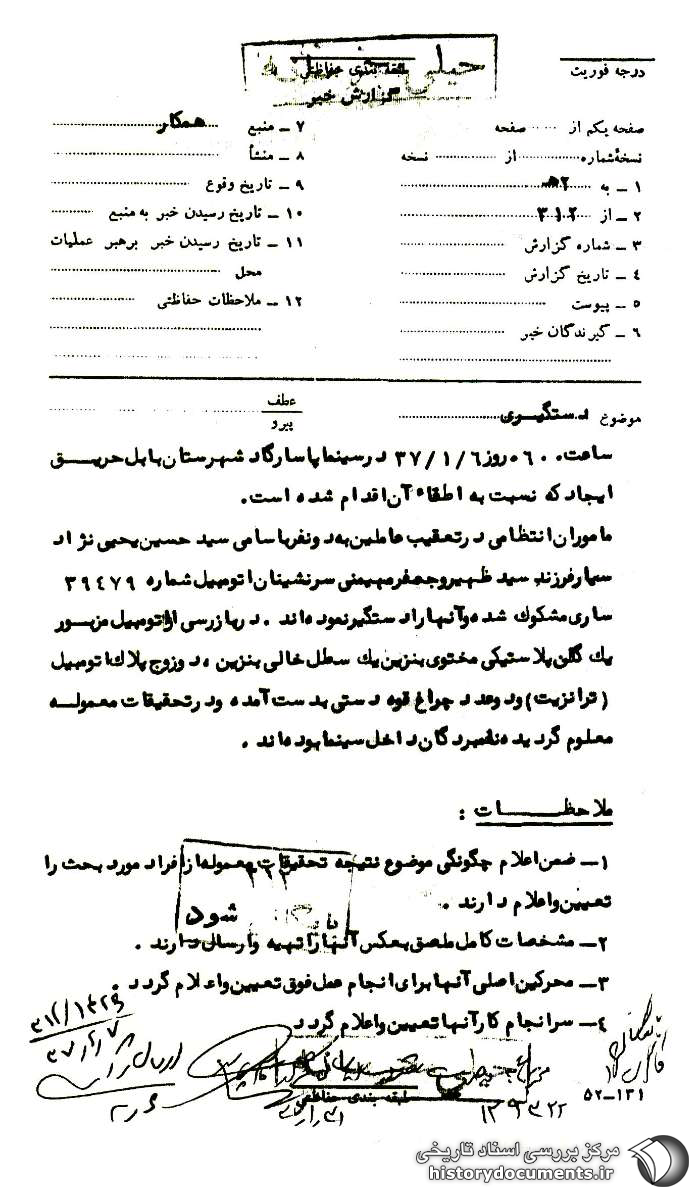 خیلی
طبقه بندی حفاظتی
گزارش خبر
درجه فوریت
صفحه یکم از ...... صفحه
نسخهٔ شماره ...... از ...... نسخه
۱ ــ به ۲هـ
۲ ــ از ۳۱۲
۳ ــ شماره گزارش
۴ ــ تاریخ گزارش
۵ ــ پیوست
۶ ــ گیرندگان خبر
۷ ــ منبع همکار
۸ ــ منشأ
۹ ــ تاریخ وقوع
۱۰ ــ تاریخ رسیدن خبر به منبع
۱۱ ــ تاریخ رسیدن خبر برهبر عملیات
محل
۱۲ ــ ملاحظات حفاظتی
موضوع دستگیری
عطف
پیرو
ساعت ۰۵۶۰ روز ۳۷/۱/۶ در سینما پاسارگاد شهرستان بابل حریق
ایجاد که نسبت به اطفاء آن اقدام شده است.
ماموران انتظامی در تعقیب عاملین به دو نفر با سامی سید حسین یحیی نژاد
سیار فرزند سید ظهیر و جعفر مهیمنی سرنشینان اتومبیل شماره ۳۹۴۷۹
ساری مشکوک شده و آنها را دستگیر نموده اند . در بازرسی از اتومبیل مزبور
یک گالن پلاستیکی محتوی بنزین یک سطل خالی بنزین ، دو زوج پلاک اتومبیل
(ترانزیت) و دو عدد چراغ قوه دستی بدست آمده و در تحقیقات معموله
معلوم گردیده نامبردگان داخل سینما بوده اند .
ملاحظات :
۱ــ ضمن اعلام چگونگی موضوع نتیجه تحقیقات معموله از افراد مورد بحث را
تعیین و اعلام دارند .
شود
۲ــ مشخصات کامل ملصق بعکس آنها را تهیه و ارسال دارند .
۳ــ محرکین اصلی آنها برای انجام عمل فوق تعیین و اعلام گردد .
۴ــ سرانجام کار آنها تعیین و اعلام گردد
طبقه بندی حفاظتی
۵۲ــ۱۳۱
مرکز بررسی اسناد تاریخی
historydocuments.ir